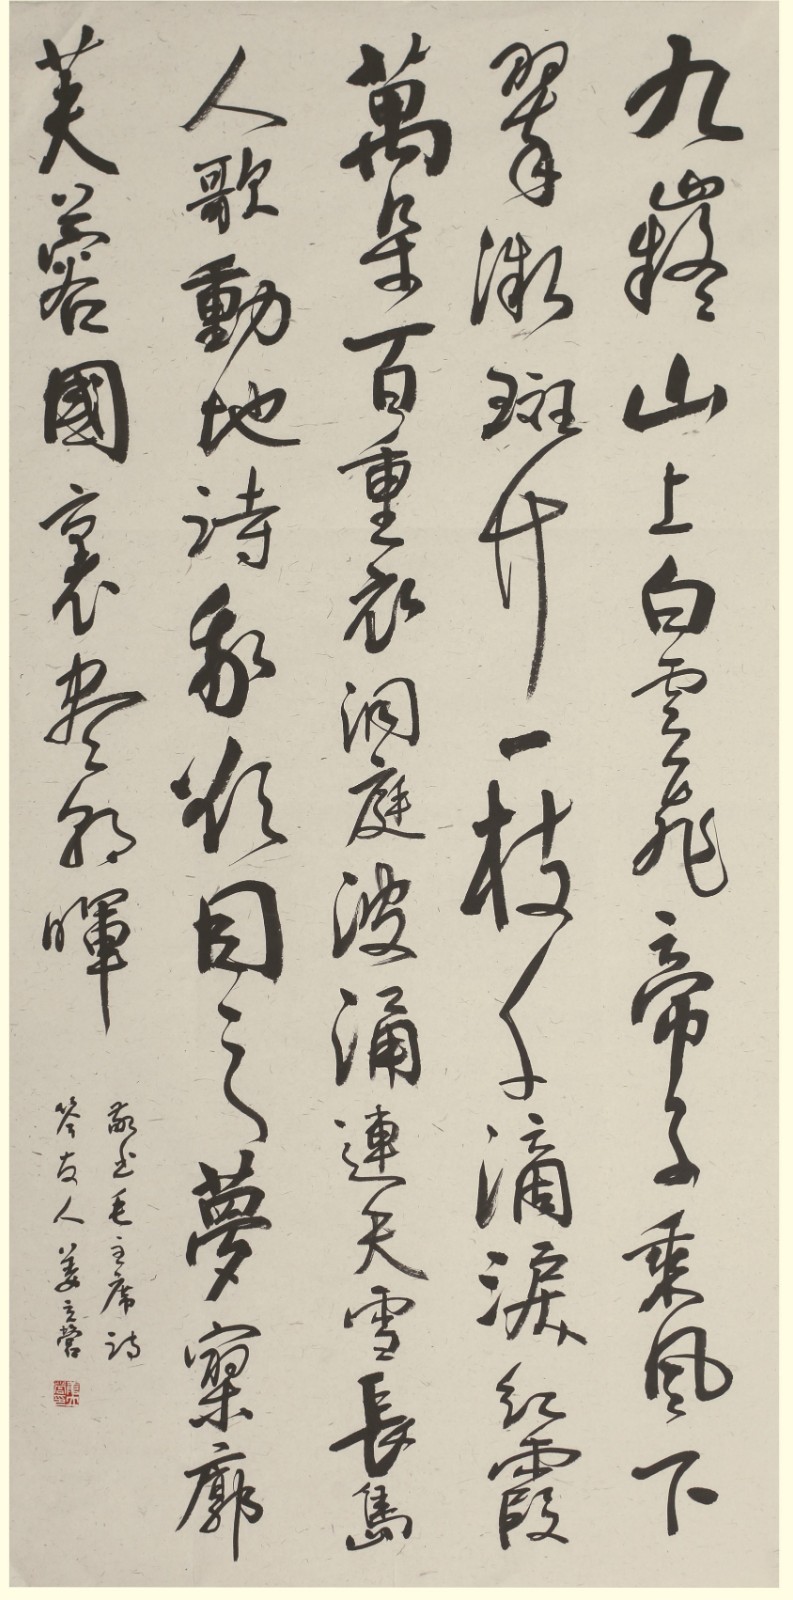 九嶷山上白雲飛帝子乘風下
翠微斑竹一枝千滴淚紅霞
萬朵百重衣洞庭波涌連天雪長島
人歌動地詩我欲因之夢寥廓
芙蓉國裏盡朝暉
敬书毛主席詩
答友人姜立营